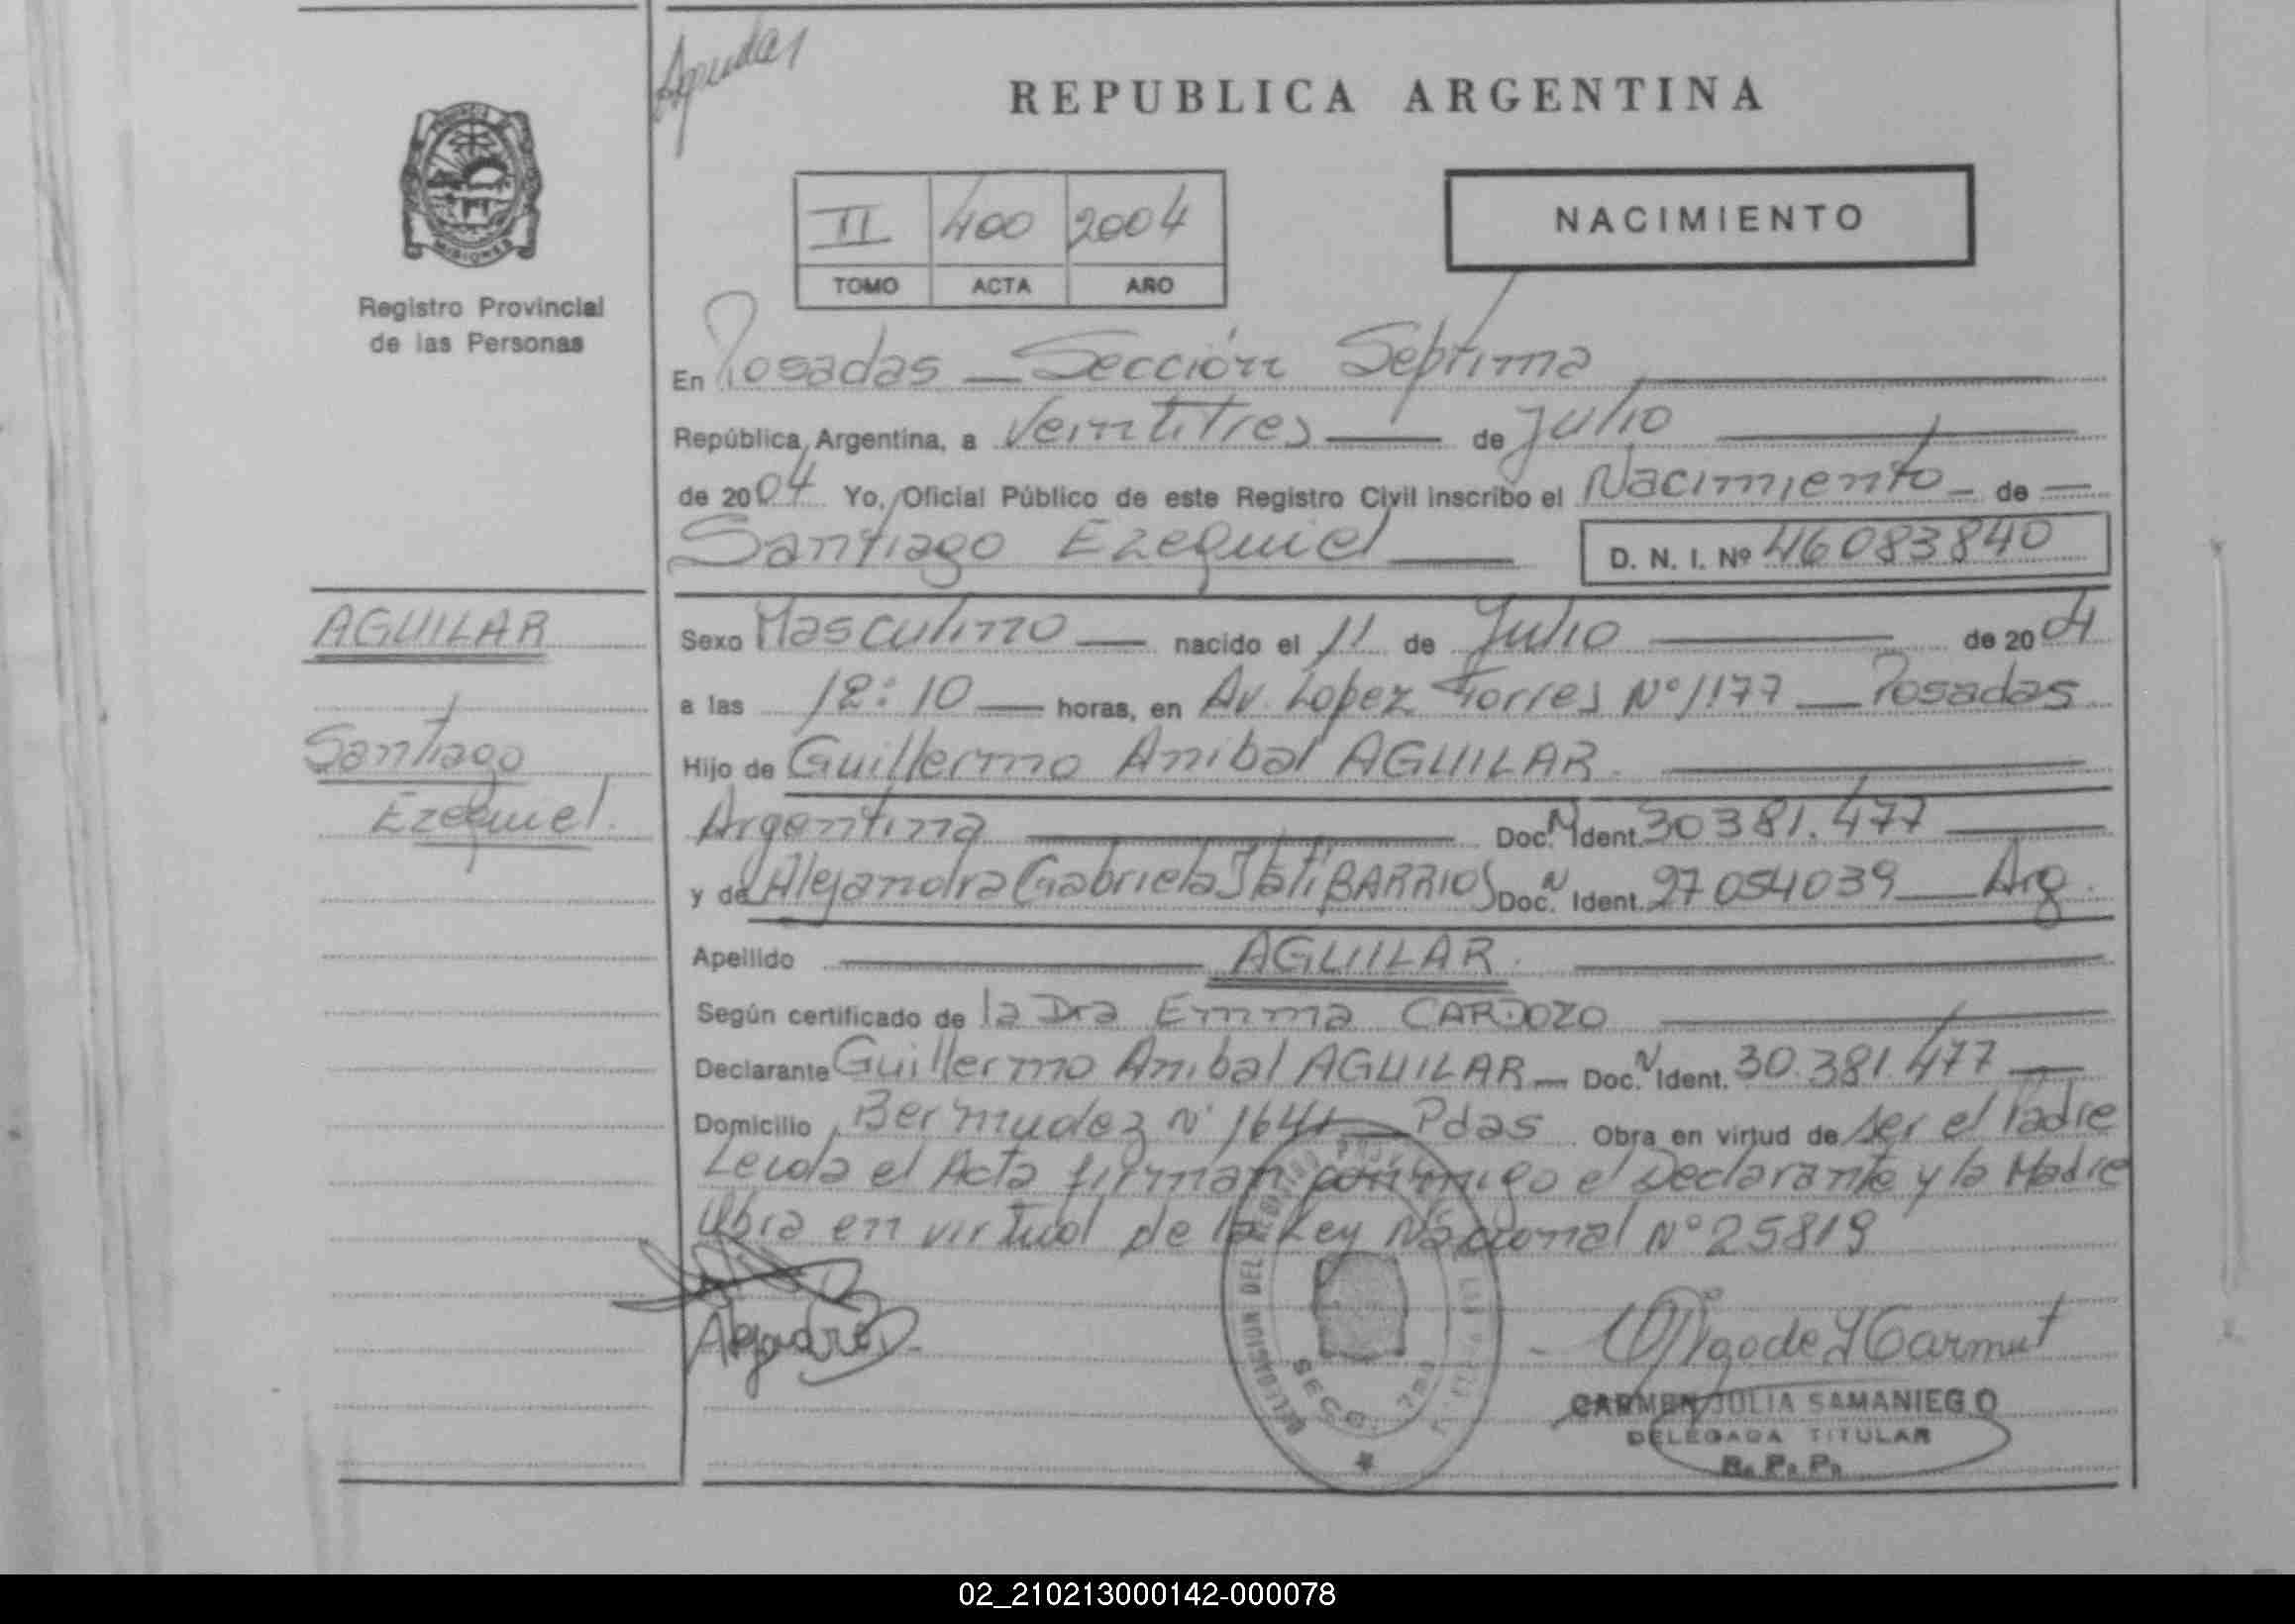 REPUBLICA ARGENTINA
MISIONES
Registro Provincial
de las Personas
II 400 2004
TOMO ACTA AÑO
NACIMIENTO
En Posadas — Sección Septima
República Argentina, a Veintitres — de Julio
de 2004 Yo, Oficial Público de este Registro Civil inscribo el Nacimiento — de —
Santiago Ezequiel — D. N. I. Nº 46083840
AGUILAR
Santiago
Ezequiel.
Sexo Masculino — nacido el 11 de Julio — de 2004
a las 12:10 — horas, en Av. Lopez Torres Nº 1177 — Posadas
Hijo de Guillermo Anibal AGUILAR.
Argentina — Doc. N Ident. 30381.477
y de Alejandra Gabriela Itati BARRIOS Doc. N Ident. 27054039 — Arg.
Apellido — AGUILAR.
Según certificado de la Dra Emma CARDOZO
Declarante Guillermo Anibal AGUILAR — Doc. N Ident. 30.381.477 —
Domicilio Bermudez Nº 1641 — Pdas Obra en virtud de ser el Padre
Leida el Acta firman conmigo el Declarante y la Madre
Obra en virtud de la Ley Nacional Nº 25819
CARMEN JULIA SAMANIEGO
DELEGADA TITULAR
R. P. P.
SECC. 7ma
02_210213000142-000078